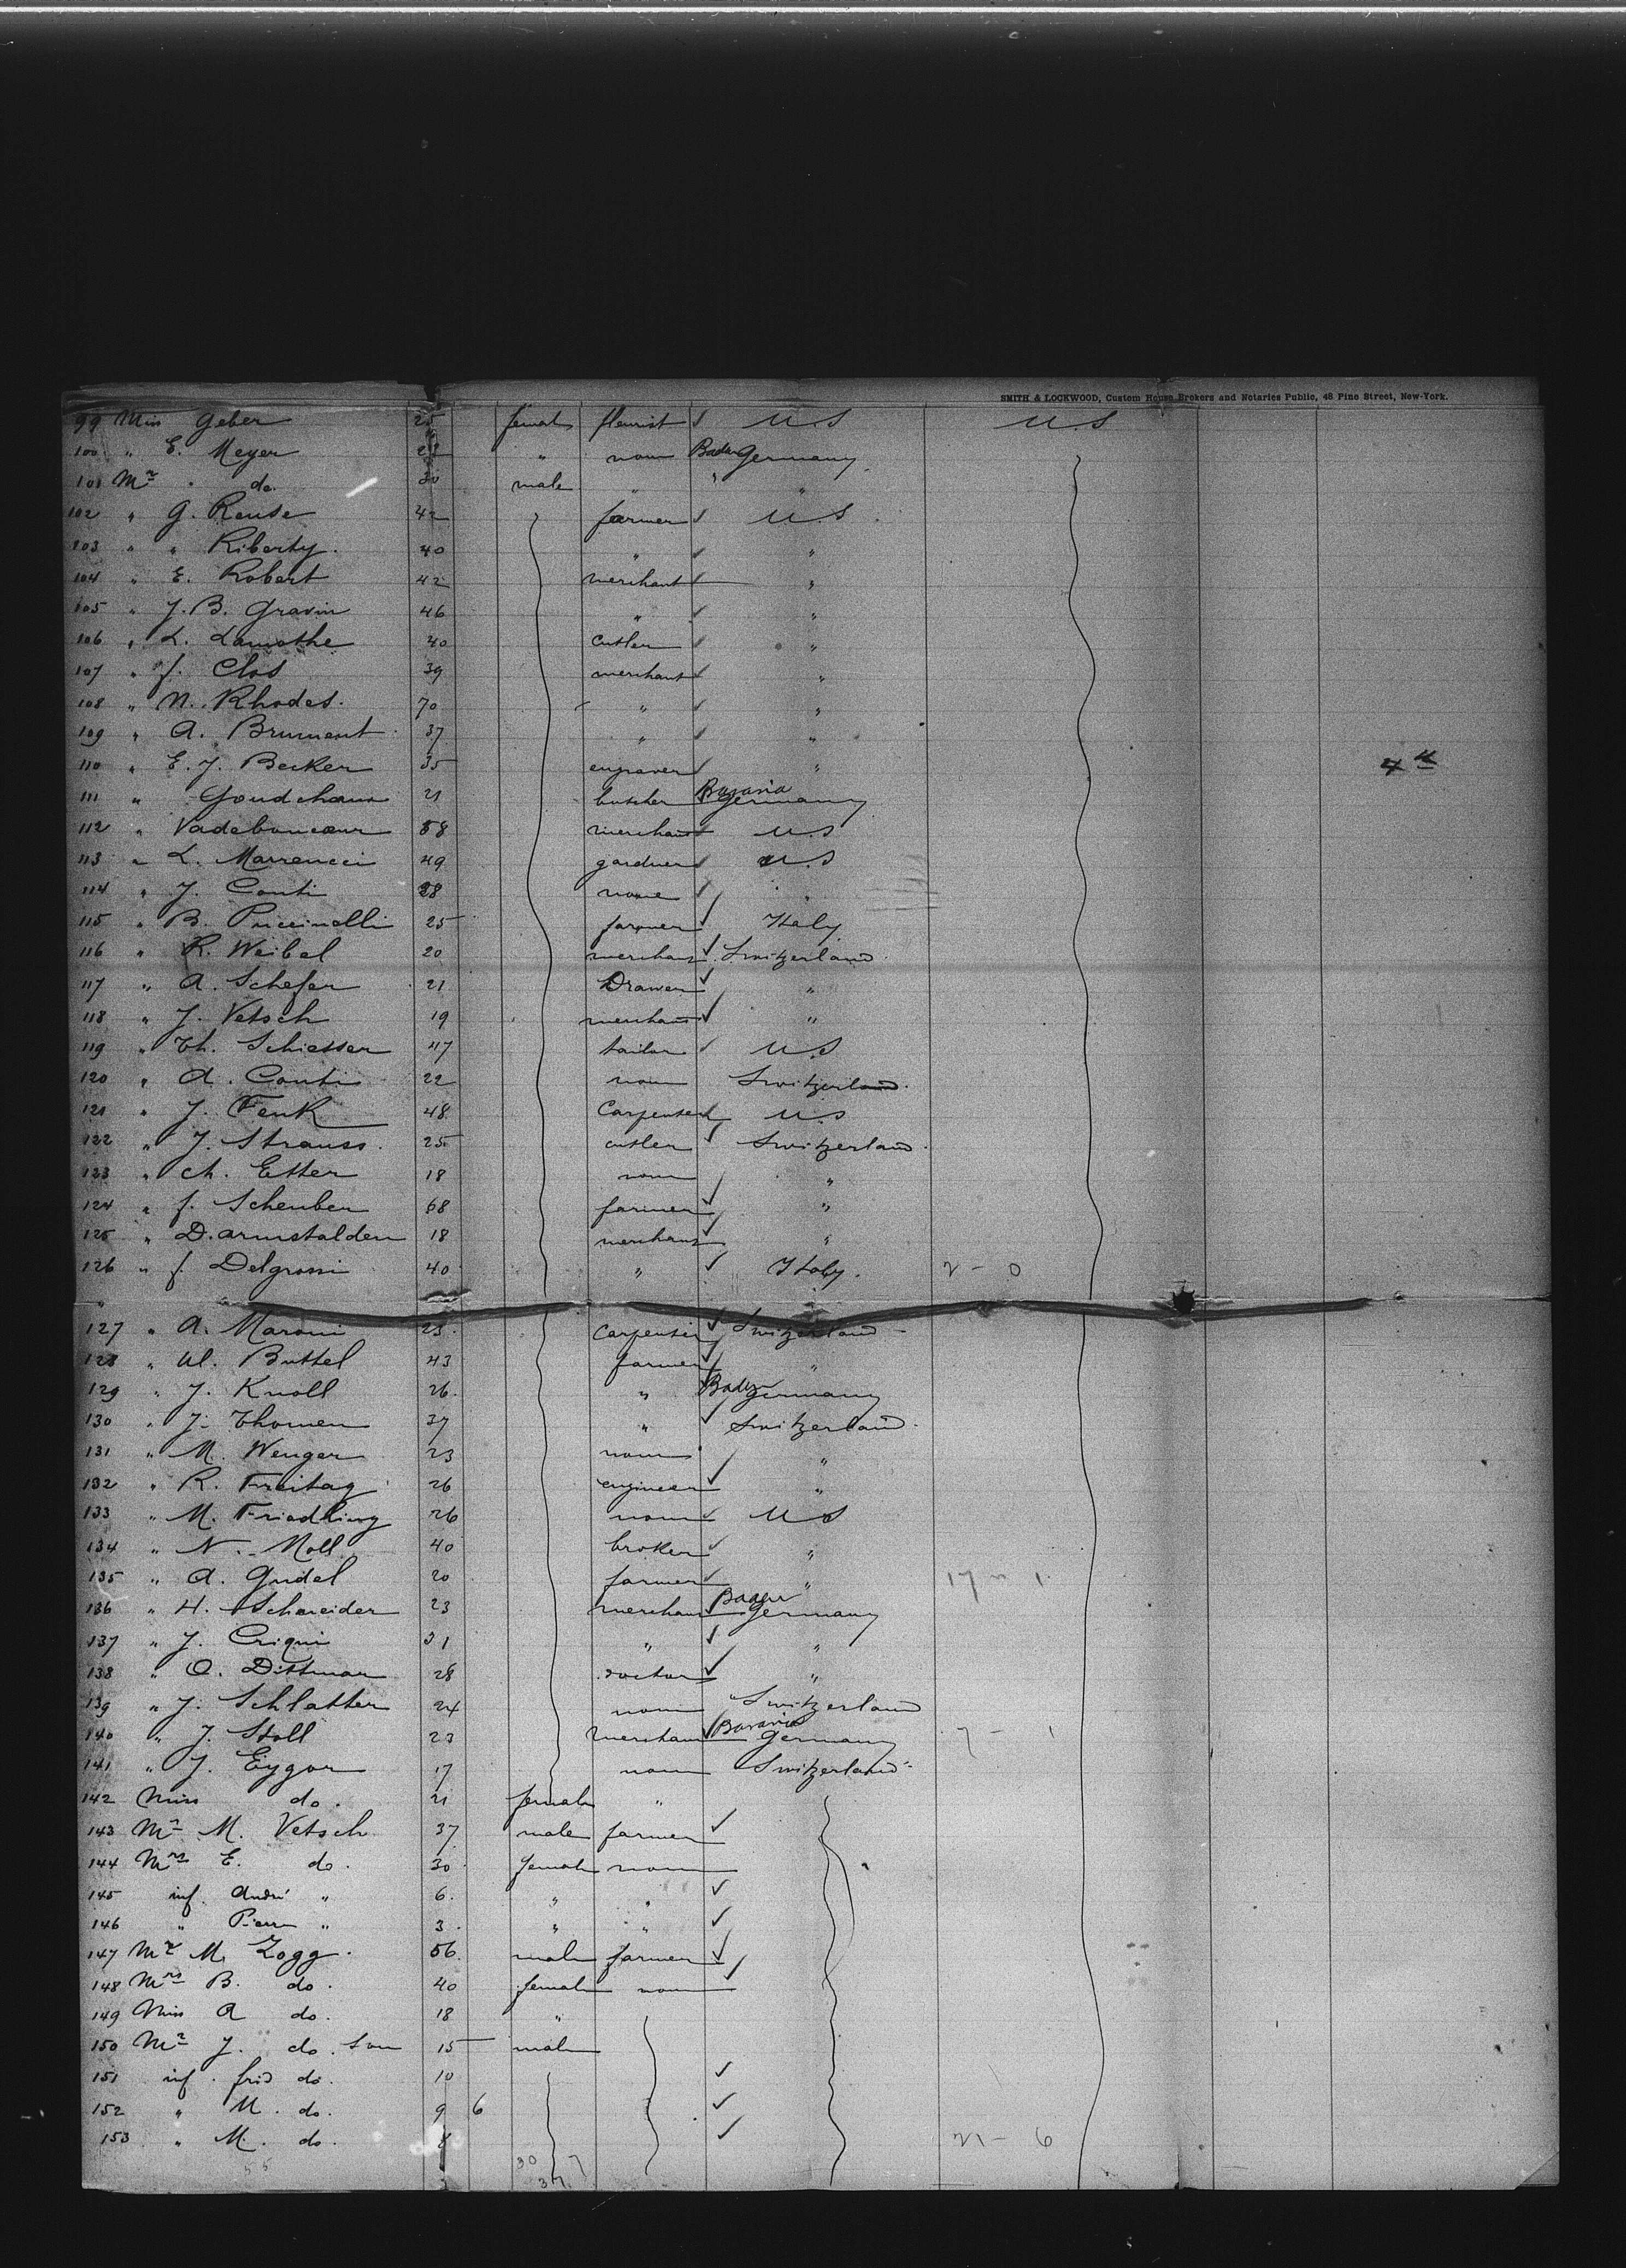 SMITH & LOCKWOOD, Custom House Brokers and Notaries Public, 48 Pine Street, New-York.
99 Miss Geber 25 female fleurist U.S U.S
100 " E. Meyer 28 " none Baden Germany
101 Mr " do. 30 male " " "
102 " G. Reuse 42 farmer U.S.
103 " " Riberty. 40 " "
104 " E. Robert 42 merchant "
105 " J. B. Gravin 46 " "
106 " L. Lamothe 40 cutler "
107 " f. Clos 39 merchant "
108 " N. Rhodes. 70 " "
109 " A. Brument 37 " "
110 " E. J. Becker 35 engraver " 4th
111 " Goudchaux 21 butcher Bavaria Germany
112 " Vadeboncœur 58 merchant U.S
113 " L. Marrencci 49 gardner U.S
114 " J. Conti 28 none "
115 " B. Puccinelli 25 farmer Italy
116 " R. Weibel 20 merchant Switzerland
117 " A. Schefer 21 Drawer "
118 " J. Vetsch 19 merchant "
119 " Th. Schiesser 47 tailor U.S
120 " A. Conti 22 none Switzerland.
121 " J. Fenk 48 Carpenter U.S
122 " J. Strauss. 25 cutler Switzerland.
123 " Ch. Etter 18 none "
124 " f. Scheuber 68 farmer "
125 " D. Armstalden 18 merchant "
126 " f. Delgrossi 40 " Italy. 2 - 0
127 " A. Maroni 23. Carpenter Switzerland
128 " Ul. Buttel 43 farmer "
129 " J. Knoll 26. " Baden Germany
130 " J. Thomen 37 " Switzerland.
131 " M. Wenger 23 none "
132 " R. Freitag 26 engineer "
133 " M. Friedling 26 none U S
134 " N. Moll 40 broker "
135 " A. Gudel 20 farmer " 17 - 1
136 " H. Schneider 23 merchant Baden Germany
137 " J. Criqui 31 " "
138 " O. Dittmar 28 doctor "
139 " J. Schlatter 24 none Switzerland
140 " J. Stoll 23 merchant Bavaria Germany 7 - 1
141 " J. Eygor 17 none Switzerland
142 Miss do. 21 female "
143 Mr M. Vetsch 37 male farmer
144 Mrs E. do. 30 female none
145 inf. André " 6. " "
146 " Pierre " 3. " "
147 Mr M. Zogg. 56. male farmer
148 Mrs B. do. 40 female none
149 Miss A do. 18 "
150 Mr J. do. Son 15 male
151 inf. frid do. 10
152 " M. do. 9 6
153 " M. do. 8 21 - 6
55 30 7
37.